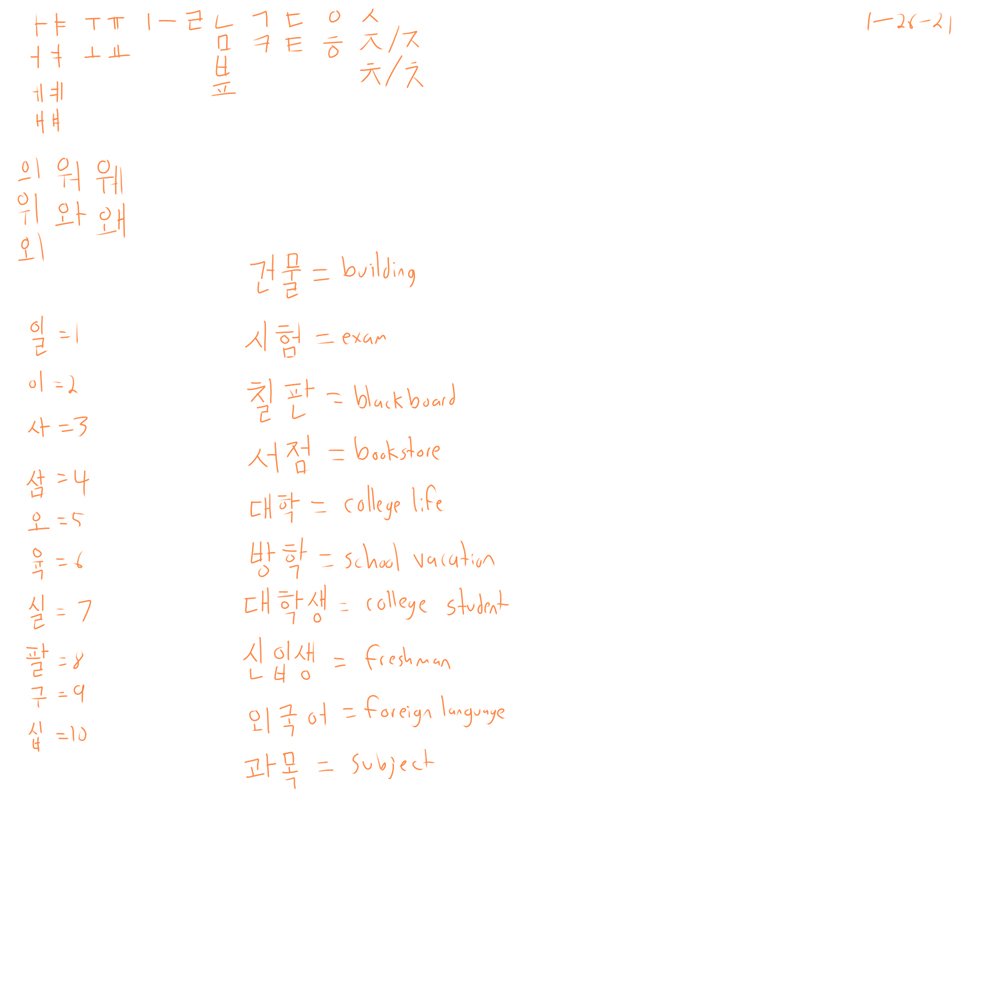 ㅏㅑ ㅜㅠ ㅣㅡㄹ ㄴ ㄱㄷ ㅇ ㅅ 1-26-21
ㅓㅕ ㅗㅛ ㅁ ㅋㅌ ㅎ ㅈ/ㅈ
ㅂ ㅊ/ㅊ
ㅔㅖ ㅍ
ㅐㅒ
의 워 웨
위 와 왜
외
건물 = building
일 = 1
시험 = exam
이 = 2
칠판 = blackboard
사 = 3
서점 = bookstore
삼 = 4
대학 = college life
오 = 5
방학 = school vacation
육 = 6
대학생 = college student
실 = 7
신입생 = freshman
팔 = 8
구 = 9
외국어 = foreign language
십 = 10
과목 = subject